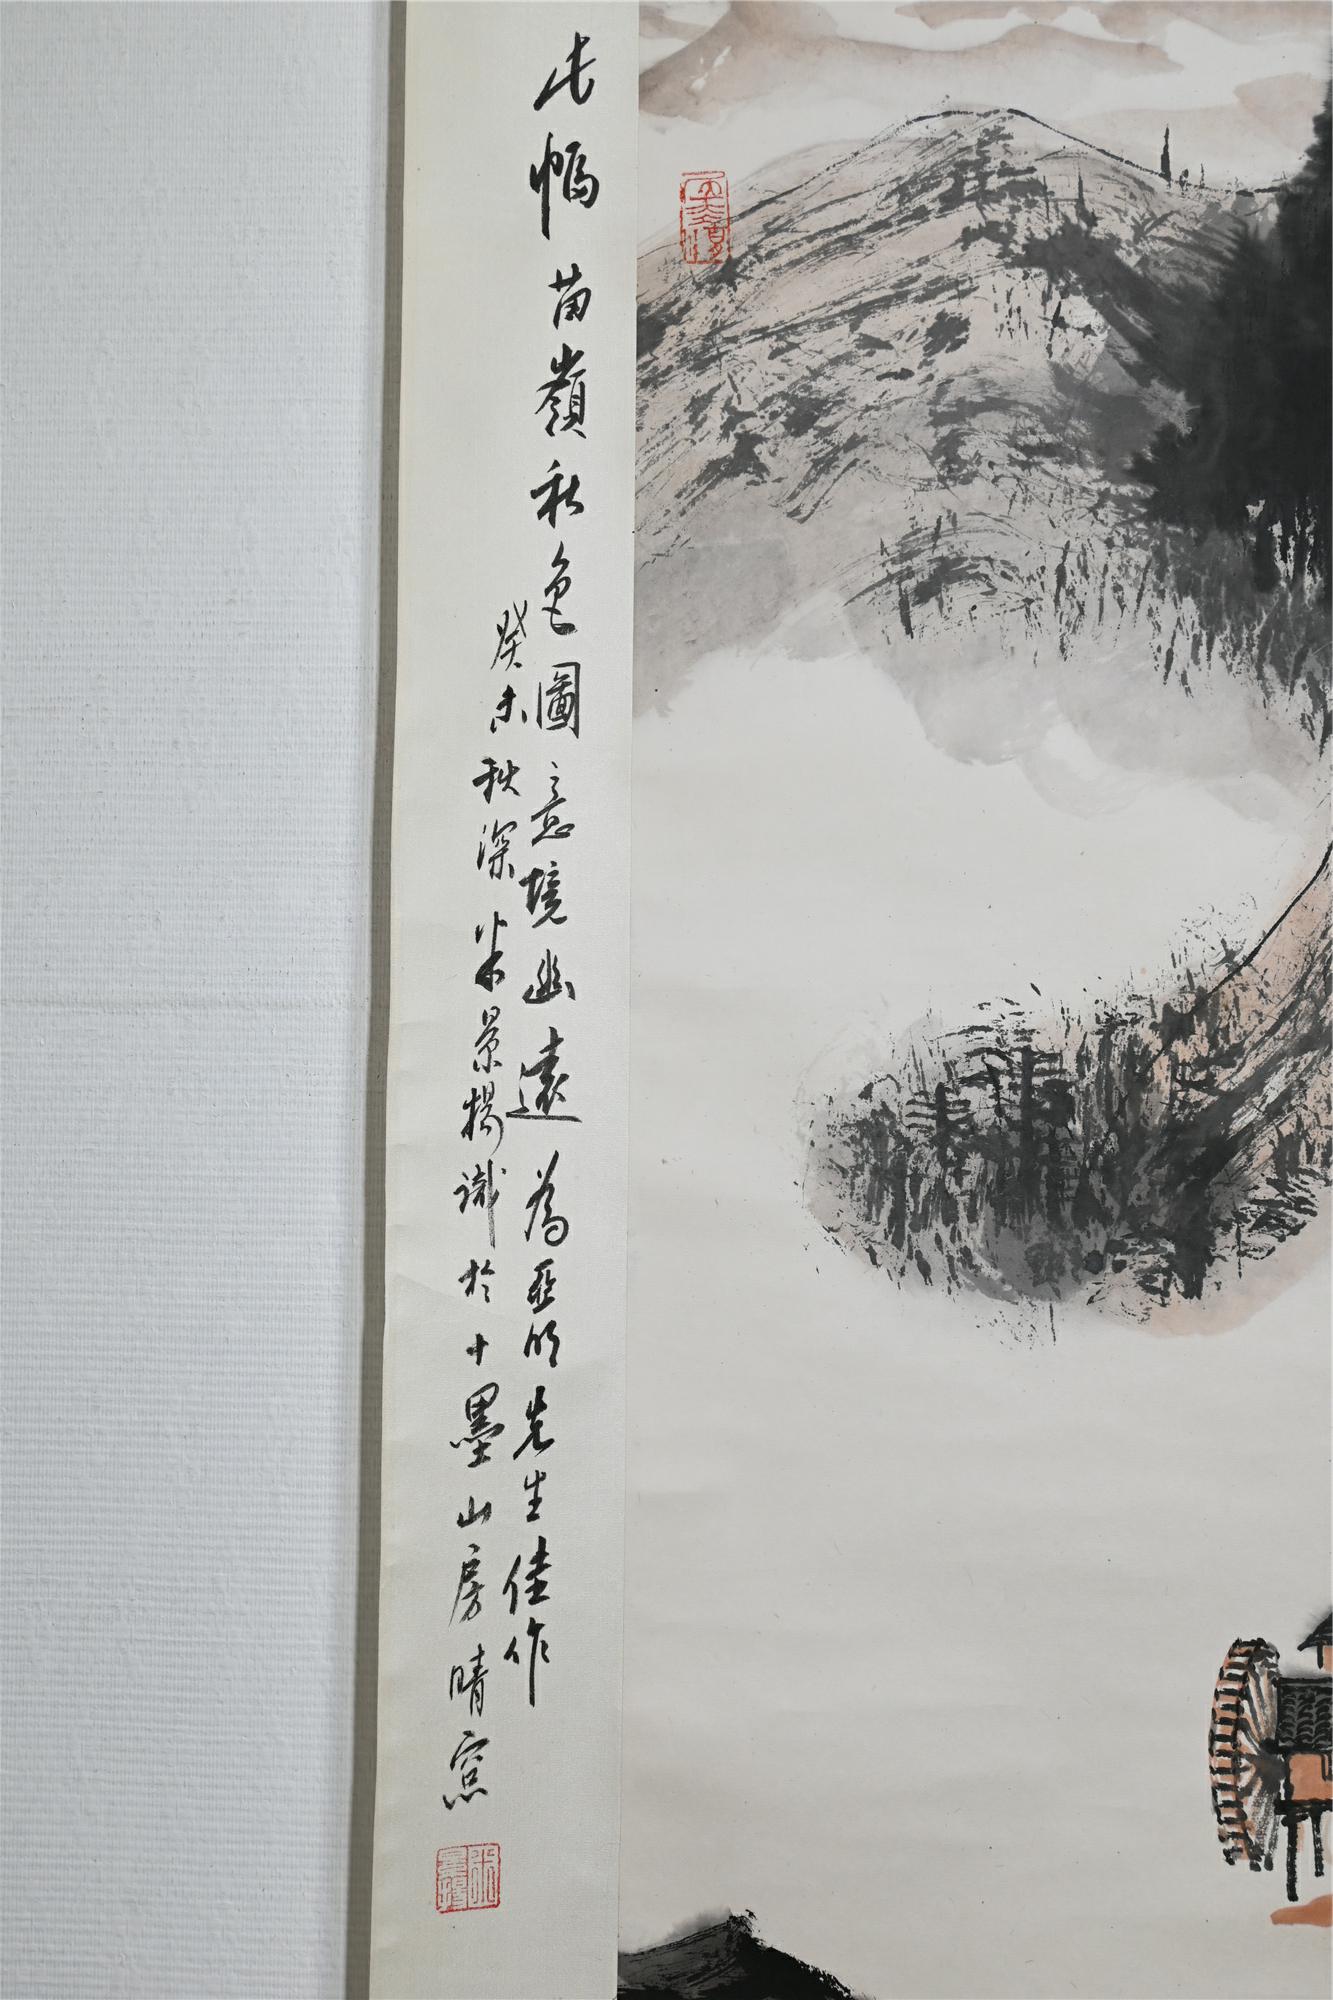 此幅苗嶺秋色圖意境幽遠為亞明先生佳作
癸未秋深米景揚識於十墨山房晴窓
米景揚